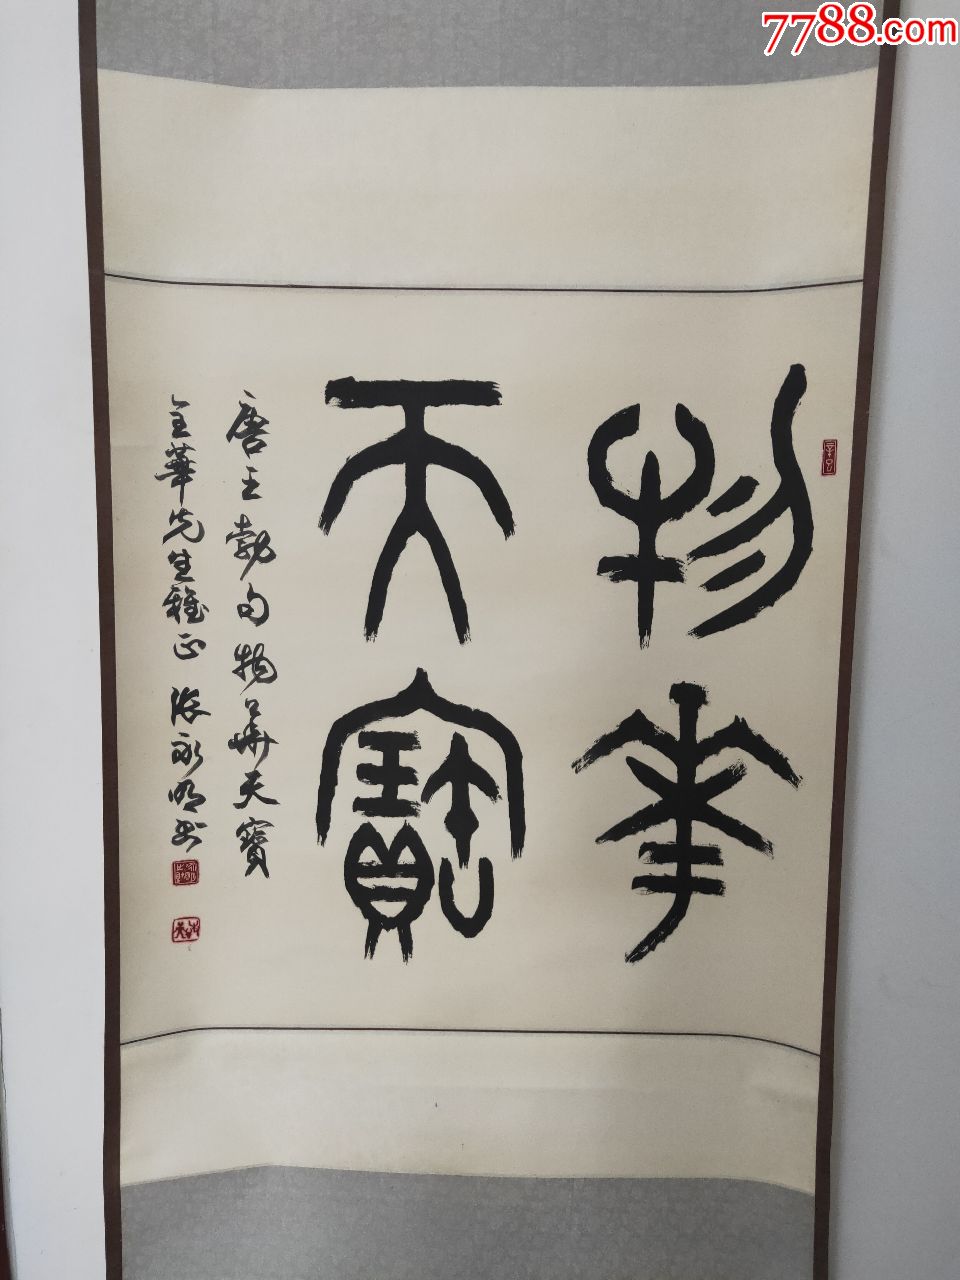 7788.com
物華
天寶
唐王勃句物華天寶
金華先生雅正 張永明书